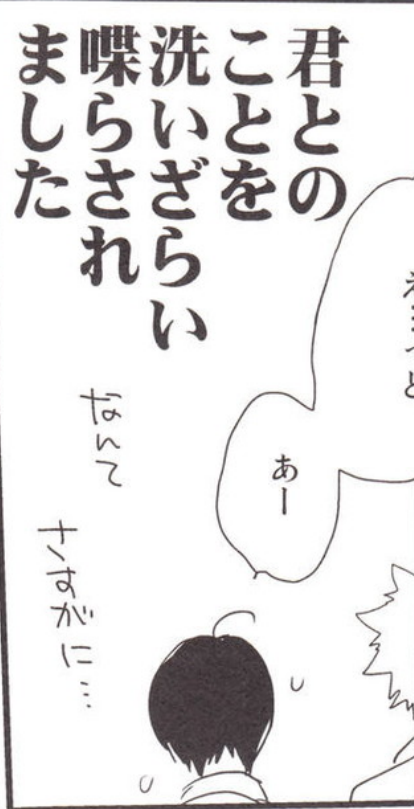 君との
ことを
洗いざらい
喋らされ
ました
あー
なんて
さすがに…